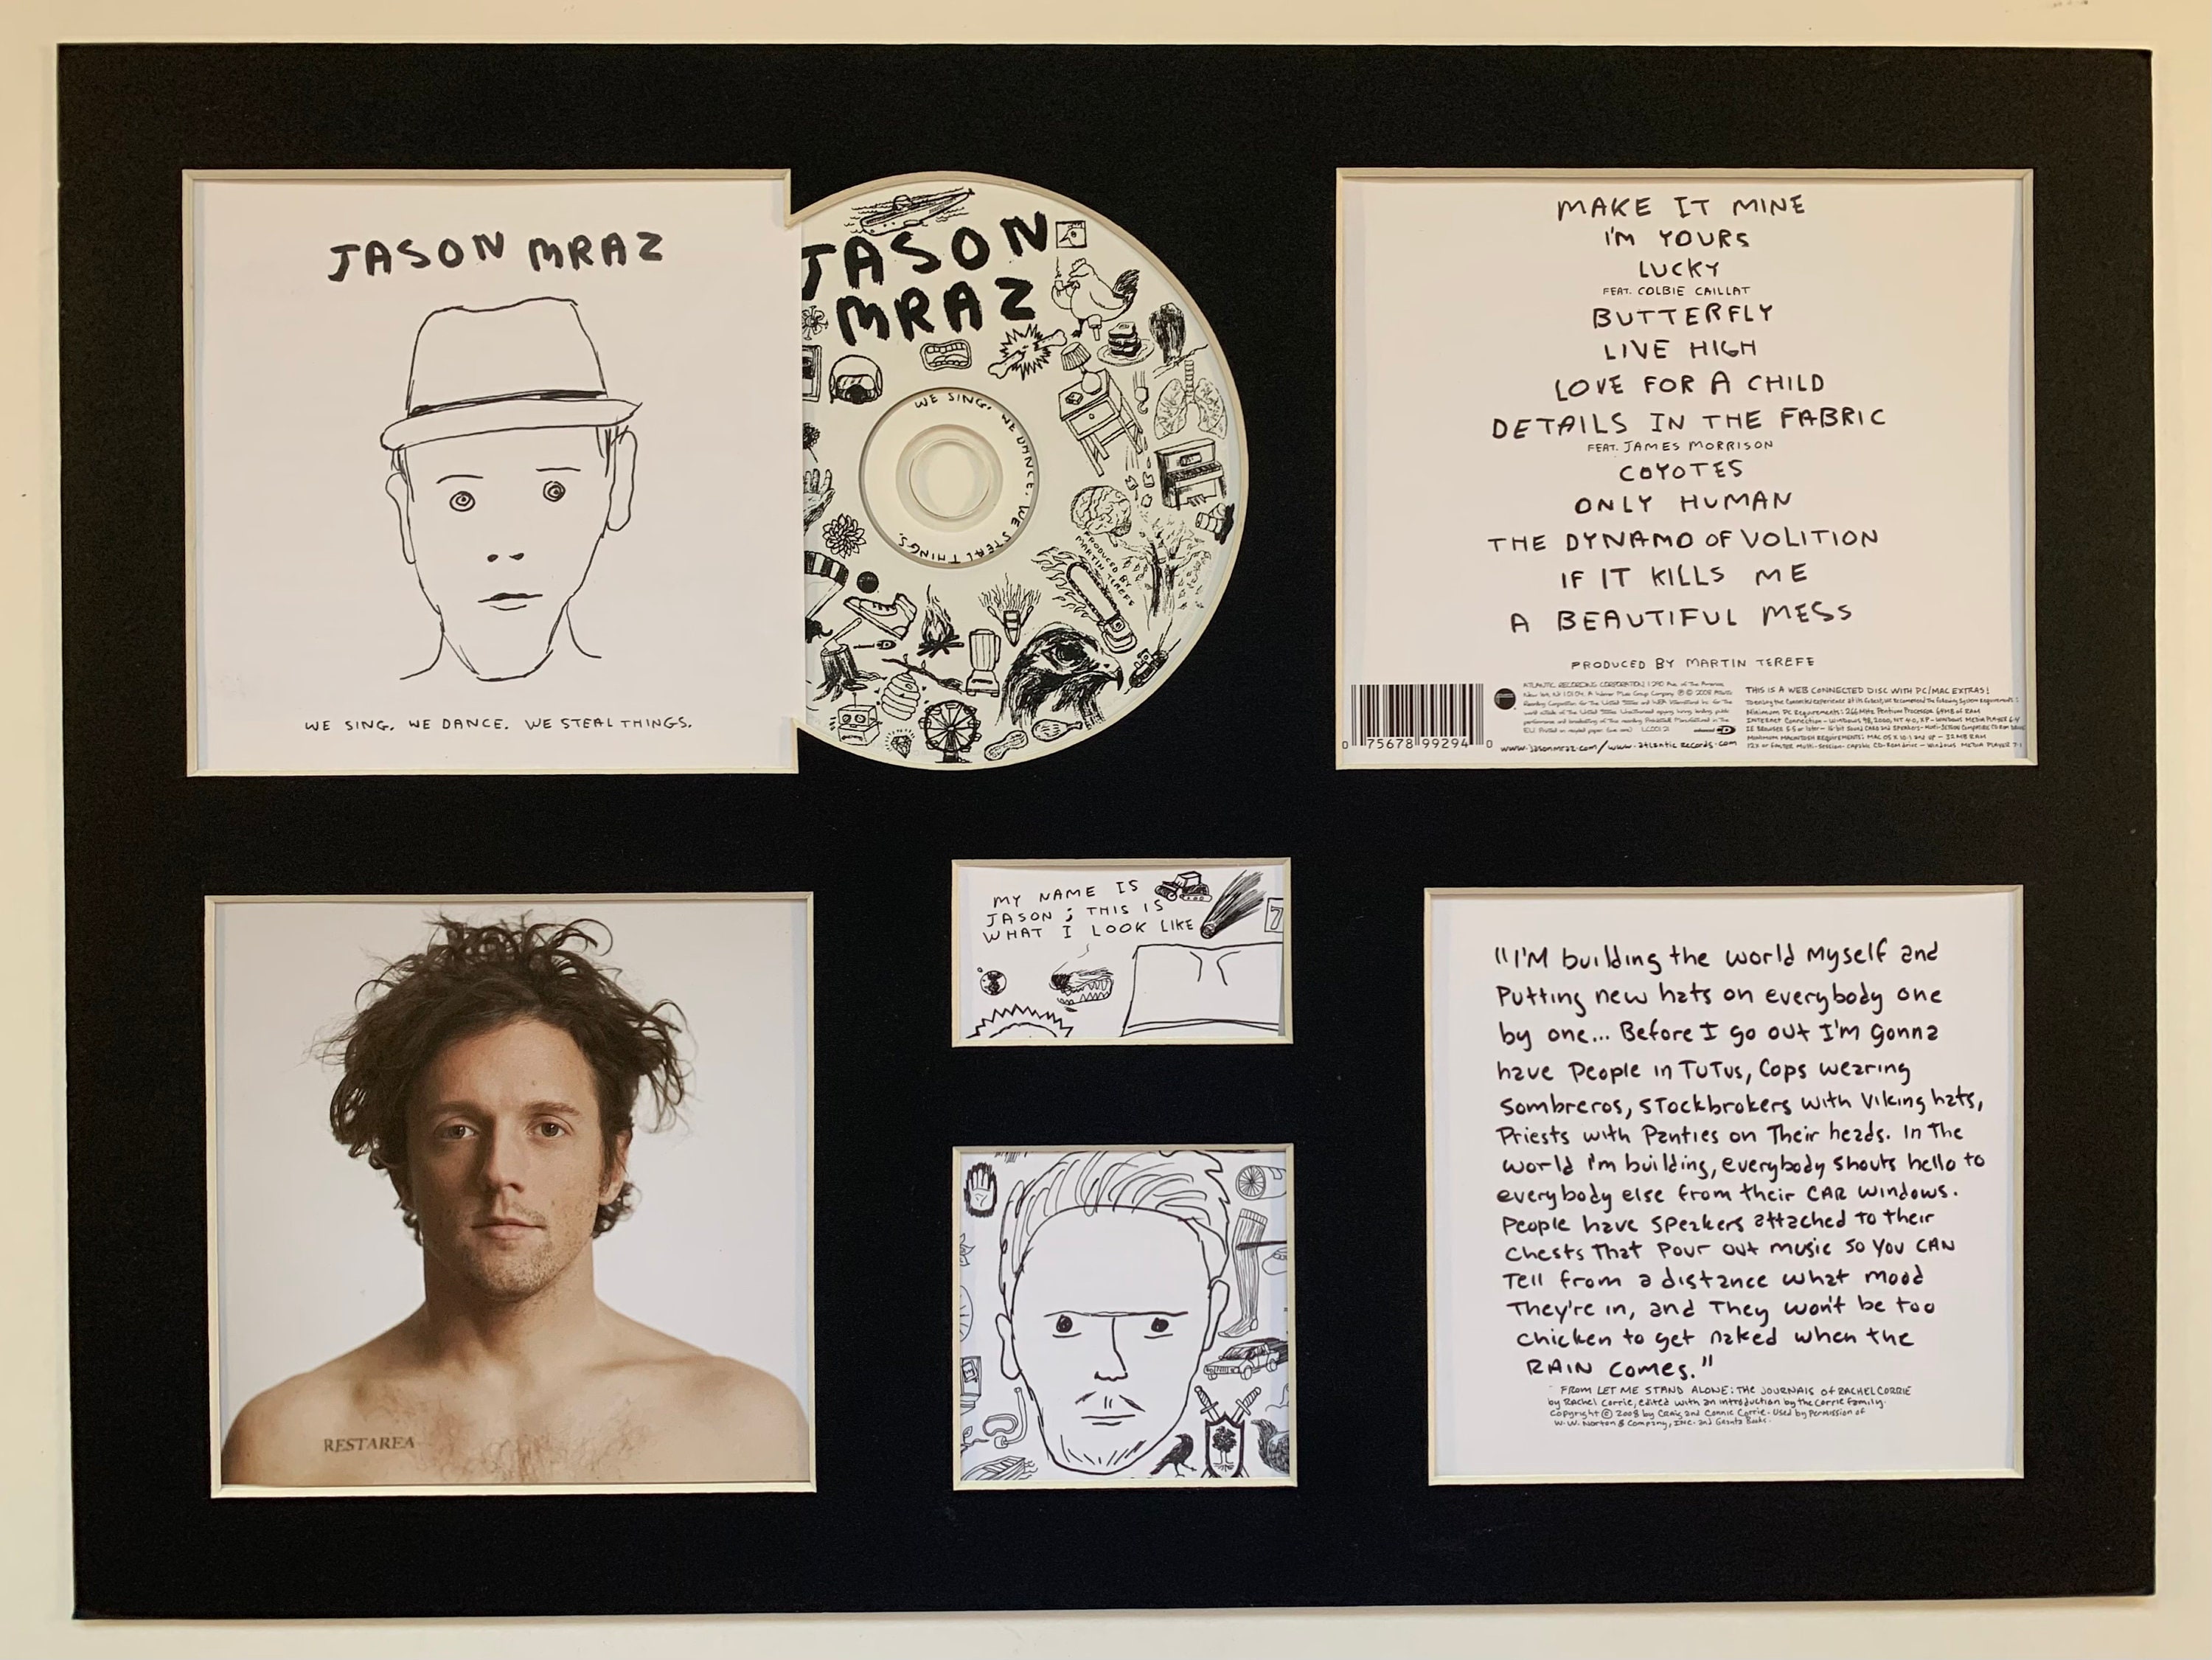 JASON MRAZ
WE SING. WE DANCE. WE STEAL THINGS.
JASON
MRAZ
WE SING. WE DANCE. WE STEAL THINGS.
PRODUCED BY
MARTIN TEREFE
MAKE IT MINE
I'M YOURS
LUCKY
FEAT. COLBIE CAILLAT
BUTTERFLY
LIVE HIGH
LOVE FOR A CHILD
DETAILS IN THE FABRIC
FEAT. JAMES MORRISON
COYOTES
ONLY HUMAN
THE DYNAMO OF VOLITION
IF IT KILLS ME
A BEAUTIFUL MESS
PRODUCED BY MARTIN TEREFE
0 75678 99294 0
www.jasonmraz.com/www.atlantic records.com
THIS IS A WEB CONNECTED DISC WITH PC/MAC EXTRAS!
RESTAREA
MY NAME IS
JASON; THIS IS
WHAT I LOOK LIKE
7
"I'M building the world Myself and
Putting new hats on everybody one
by one... Before I go out I'm Gonna
have People in TuTus, Cops wearing
Sombreros, STockbrokers with Viking hats,
Priests with Panties on Their heads. In The
World I'm building, everybody Shouts hello to
everybody else from their CAR windows.
People have Speakers attached to their
Chests That Pour out music so You CAN
Tell from a distance what mood
They're in, and They won't be too
chicken to get naked when the
RAIN Comes."
FROM LET ME STAND ALONE: THE JOURNALS OF RACHEL CORRIE
by Rachel Corrie, edited with an introduction by the Corrie family.
Copyright © 2008 by Craig and Connie Corrie. Used by Permission of
W.W. Norton & Company, Inc. and Granta Books.